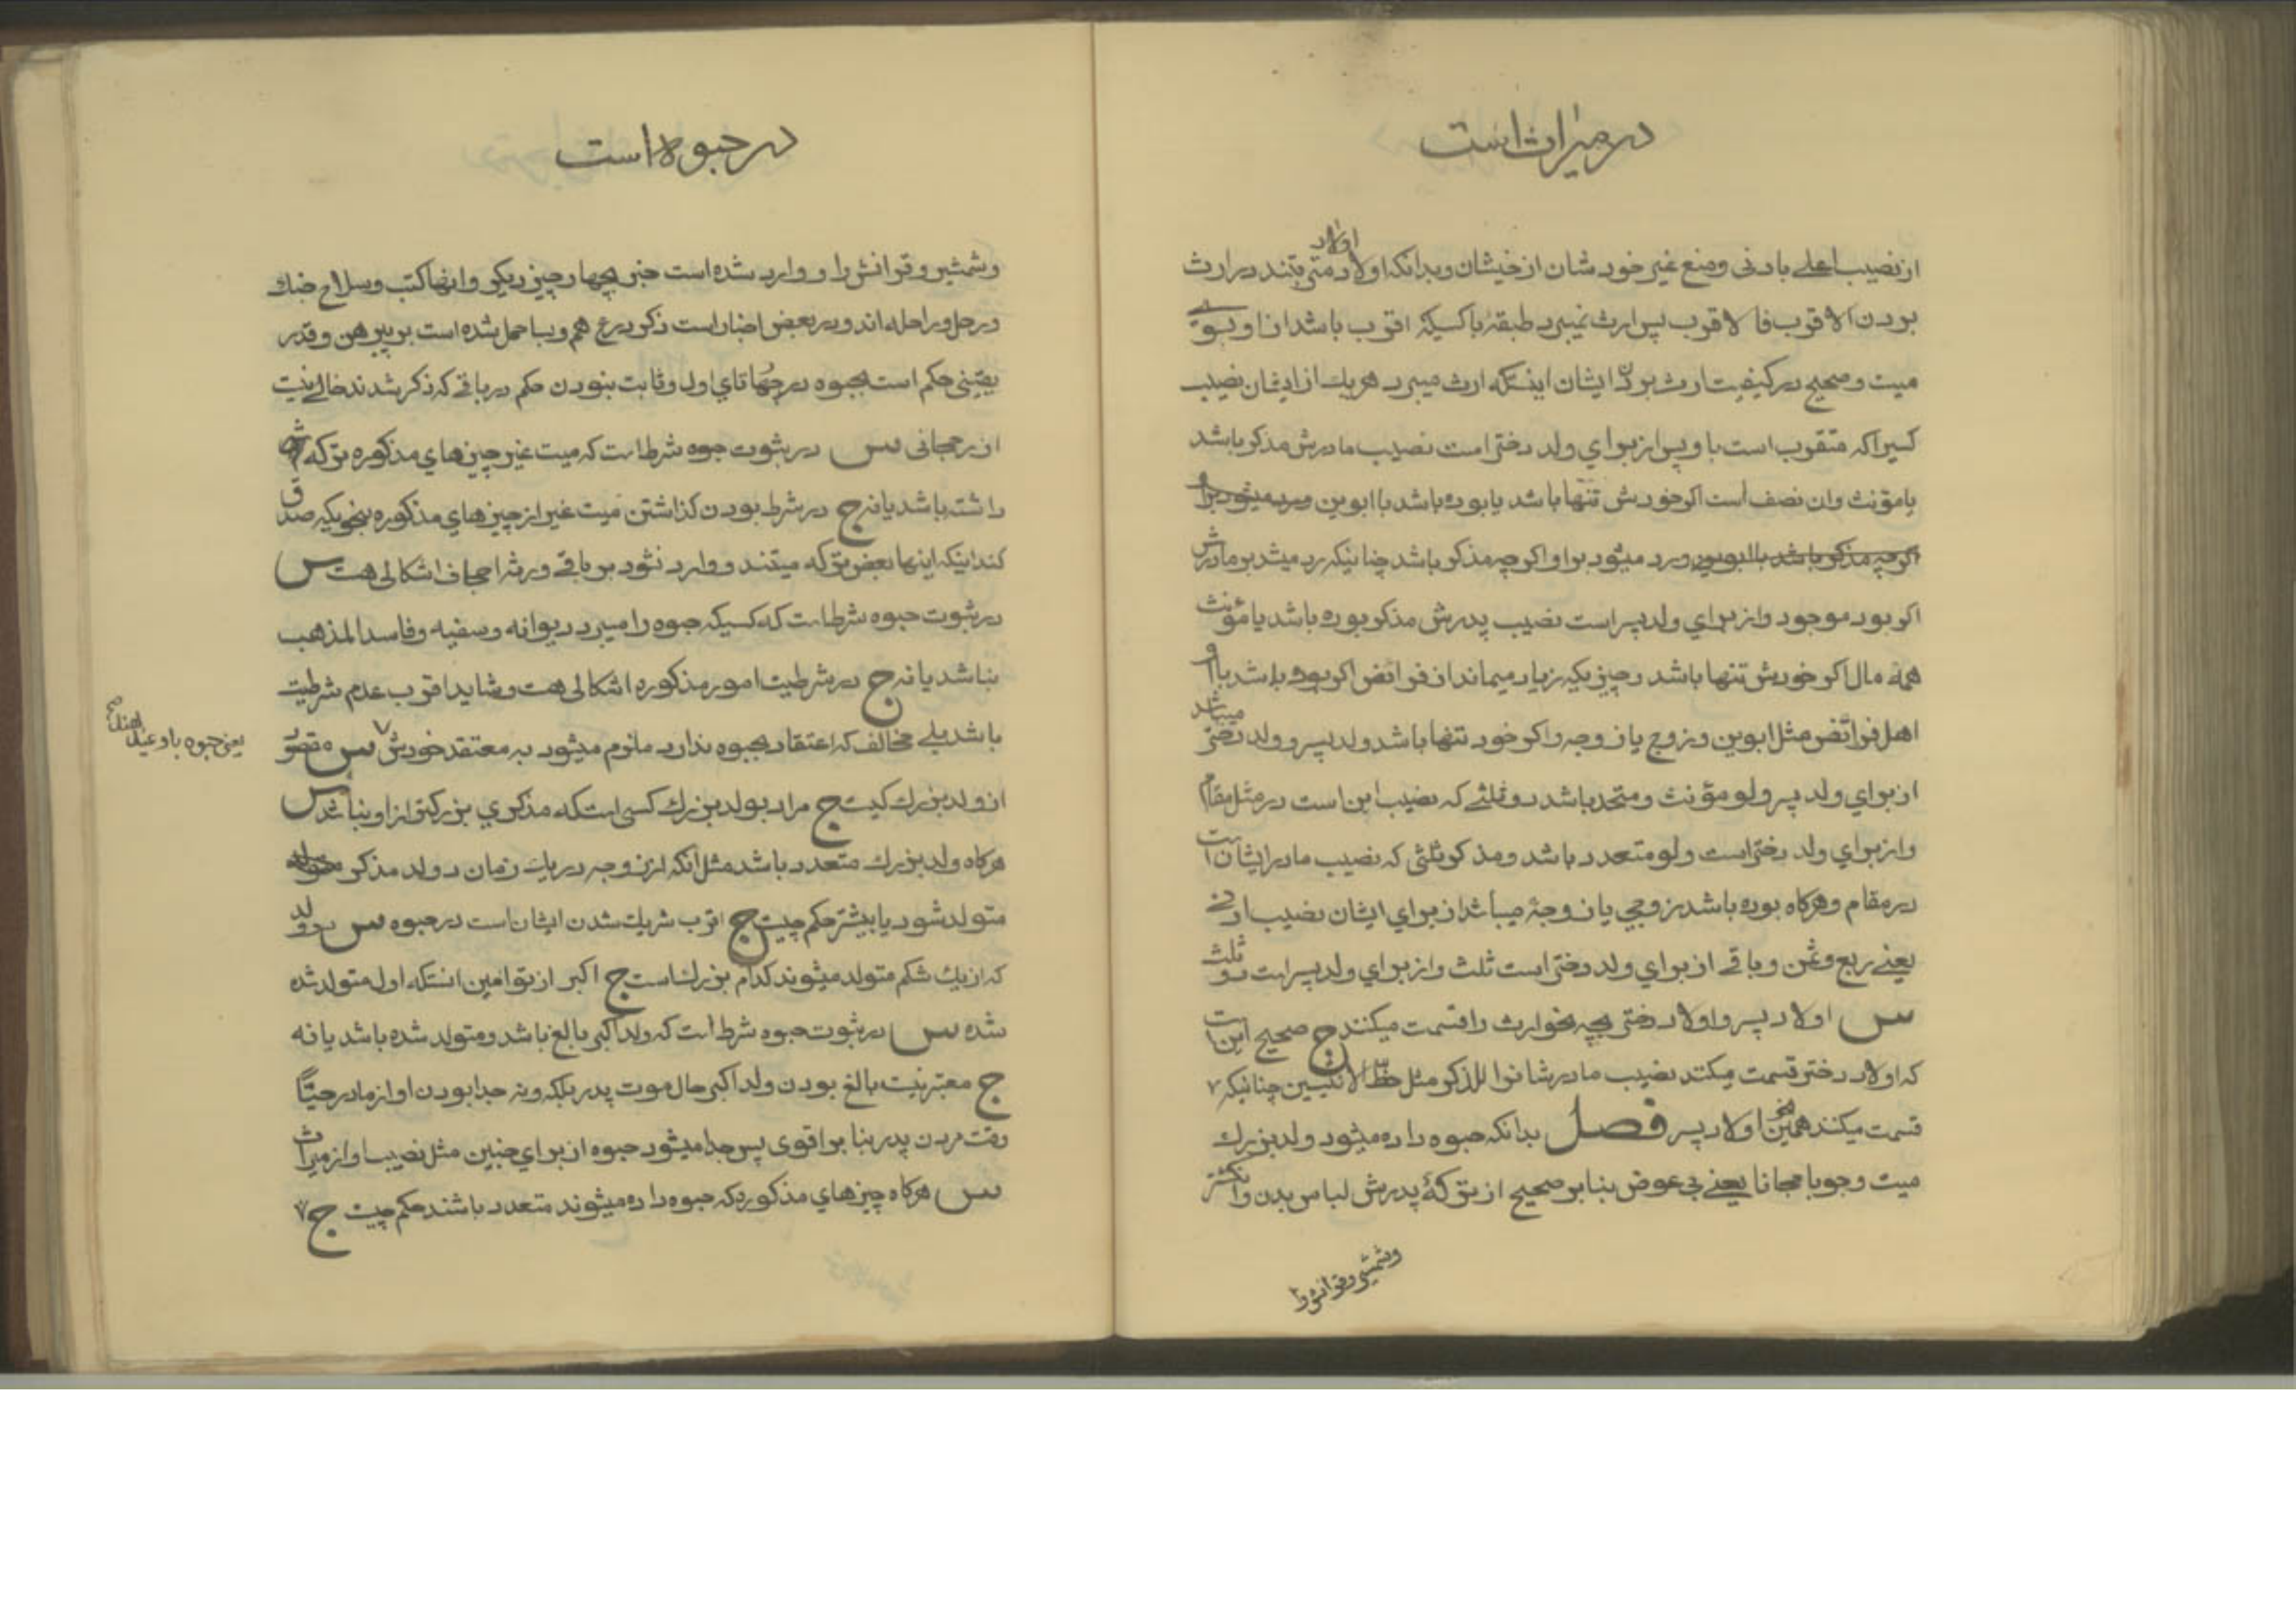 در میراث است
از نصیب اعلے بادنی و منع غیر خودشان از خیشان و بدانکه اولاد اولاد مترتبند در ارث
بودن الاقرب فالاقرب پس ارث نمیبرد طبقهٔ باکسیکه اقرب باشد از او بسوی
میت و صحیح در کیفیت ارث بردن ایشان اینستکه ارث میبرد هر یك از ایشان نصیب
کسیراکه متقرب است باو پس از برای ولد دختر است نصیب مادرش مذکر باشد
یا مؤنث وان نصف است اکر خودش تنها باشد یا بوده باشد با ابوین و رد میشود بر او
اکرچه مذکر باشد با ابوین و رد میشود بر او اکرچه مذکر باشد چنانیکه رد میشد بر مادرش
اکر بود موجود و از برای ولد پسر است نصیب پدرش مذکر بوده باشد یا مؤنث
همهٔ مال اکر خودش تنها باشد و چیزیکه زیاد میماند از فرائض اکر بوده باشد با او
اهل فرائض مثل ابوین و زوج یا زوجه و اکر خود تنها باشد ولد پسر و ولد دختر میباشد
از برای ولد پسر ولو مؤنث و متحد باشد دو ثلثے که نصیب ابن است در مثل مقام
و از برای ولد دختر است ولو متعدد باشد و مذکر ثلثی که نصیب مادر ایشان است
در مقام و هرکاه بوده باشد زوجی یا زوجهٔ میباشد از برای ایشان نصیب ادنے
یعنے ربع و ثمن و باقے از برای ولد دختر است ثلث و از برای ولد پسر است دو ثلث
س اولاد پسر و اولاد دختر بچه نحو ارث را قسمت میکنند ج صحیح این است
که اولاد دختر قسمت میکند نصیب مادرشانرا للذکر مثل حظ الانثیین چنانیکه
قسمت میکنند همچنین اولاد پسر فصل بدانکه حبوه داده میشود ولد بزرك
میت وجوبا مجانا یعنے بی عوض بنا بر صحیح از ترکهٔ پدرش لباس بدن و انکشتر
و شمشیر و قرانش را
در حبوه است
و شمشیر و قرانش را و وارد شده است خبر بچهار چیز دیکر و انها کتب و سلاح جنك
و رحل و راحله اند و در بعض اخبار است ذکر درع هم و بسا حمل شده است بر پیرهن و قدر
یقینی حکم است بحبوه در چهارتای اول و ثابت بنودن حکم در باقے که ذکر شدند خالے نیست
از رجحانی س در ثبوت حبوه شرط است که میت غیر چیزهای مذکوره ترکه هم
داشته باشد یا نه ج در شرط بودن کذاشتن میت غیر از چیزهای مذکوره بنحویکه صدق
کند اینکه اینها بعض ترکه میتند و وارد نشود بر باقے ورثه اجحاف اشکالی هست س
در ثبوت حبوه شرط است که کسیکه حبوه را میبرد دیوانه و سفیه و فاسد المذهب
نباشد یا نه ج در شرطیت امور مذکوره اشکالی هست و شاید اقرب عدم شرطیت
باشد بلے مخالف که اعتقاد بحبوه ندارد ملزم میشود به معتقد خودش س مقصود
یعنی حبوه باو عید
از ولد بزرك کیست ج مراد بولد بزرك کسی است که مذکری بزرکتر از او نباشد س
هرکاه ولد بزرك متعدد باشد مثل انکه از زوجه در یك زمان دو ولد مذکر
متولد شود یا بیشتر حکم چیست ج اقرب شریك شدن ایشان است در حبوه س دو ولد
که از یك شکم متولد میشوند کدام بزرك است ج اکبر از توامین انستکه اول متولد شده
شده س در ثبوت حبوه شرط است که ولد اکبر بالغ باشد و متولد شده باشد یا نه
ج معتبر نیست بالغ بودن ولد اکبر حال موت پدر بلکه و نه جدا بودن او از مادر حیًّا
وقت مردن پدر بنا بر اقوی پس جدا میشود حبوه از برای جنین مثل نصیب او از میراث
س هرکاه چیزهای مذکوره که حبوه داده میشوند متعدد باشند حکم چیست ج